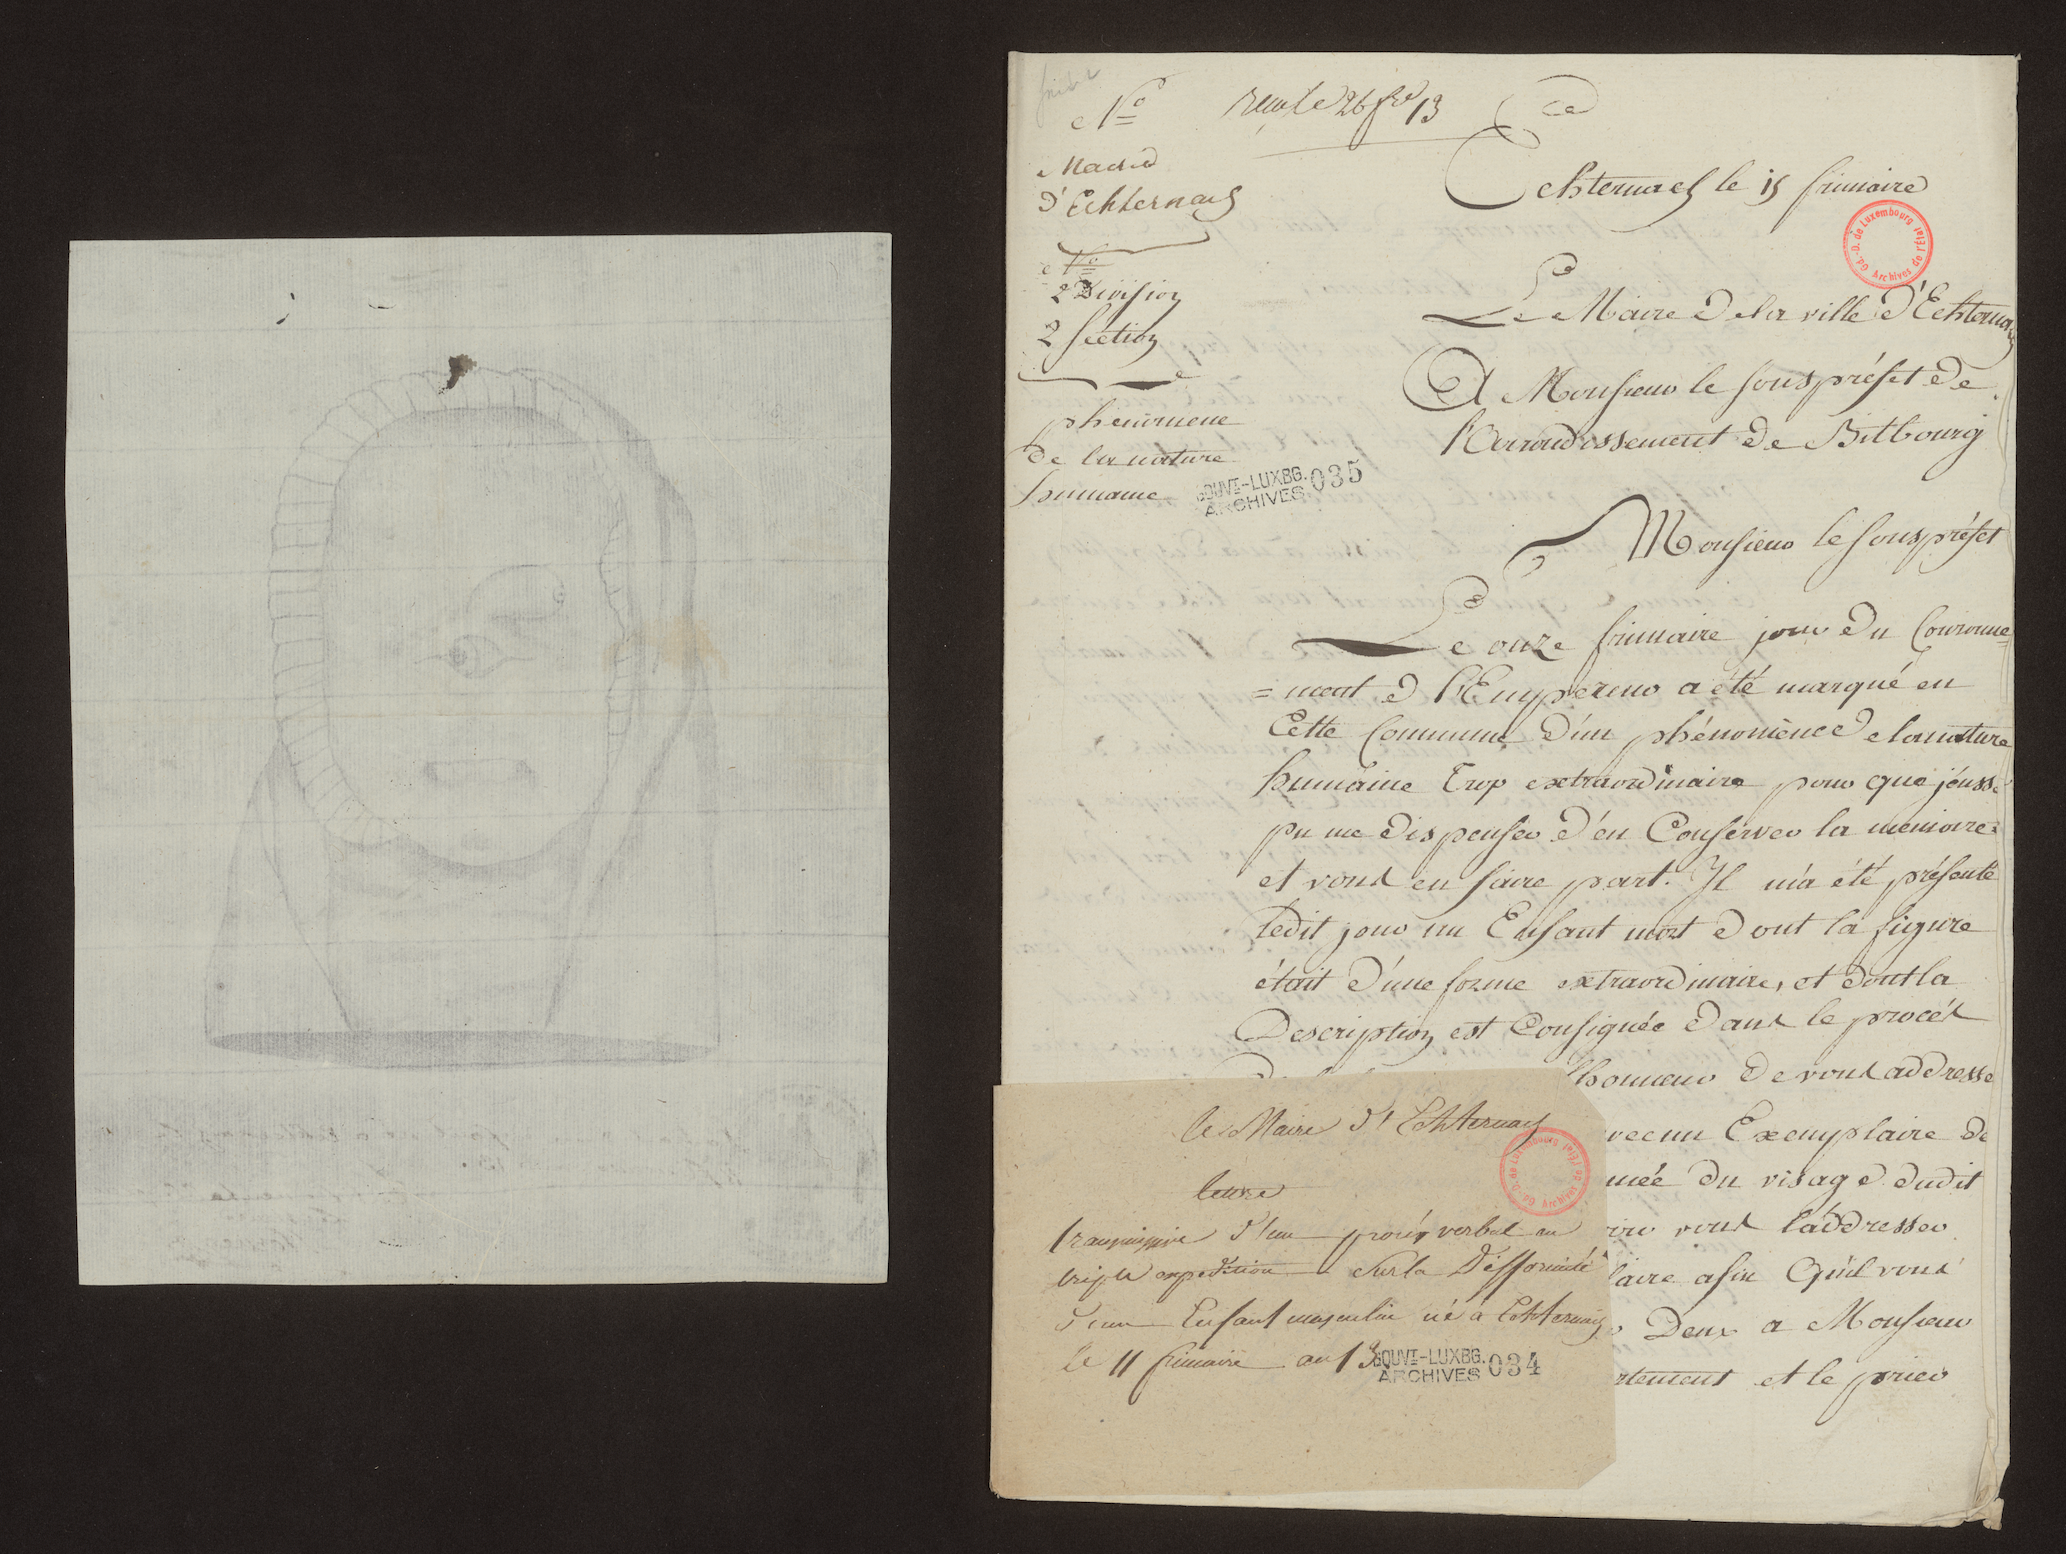 N.o
reçu le 26 fre 13
Mairie
d'Echternach
Echternach le 15 frimaire
Gd.-D. de Luxembourg Archives de l'État
N.o
2 Division
2 Section
phenomene
de la nature
humaine
GOUVT-LUXBG. ARCHIVES 035
Le Maire de la ville d'Echternach
A Monsieur le souspréfet de
l'Arrondissement de Bitbourg
Monsieur le souspréfet
Le onze frimaire jour du Couronne=
=ment d l'Empereur a été marqué en
Cette Commune d'un phénomènee de la nature
humaine trop extraordinaire pour que j'eusse
pu me dispenser d'en Conserver la memoire
et vous en faire part. Il m'a été présenté
ledit jour un Enfant mort dont la figure
était d'une forme extraordinaire, et dont la
Description est Consignée dans le procés
l'honneur de vous addresse
avec un Exemplaire de
du visage dudit
vous l'addresser
afin Qu'il vous
Deux a Monsieur
et le prier
le Maire d'Echternach
Gd.-D. de Luxembourg Archives de l'État
lettre
transmissive d'un procès verbal en
triple expedition sur la Difformité
d'un Enfant masculin né à Echternach
le 11 frimaire an 13.
GOUVT-LUXBG. ARCHIVES 034